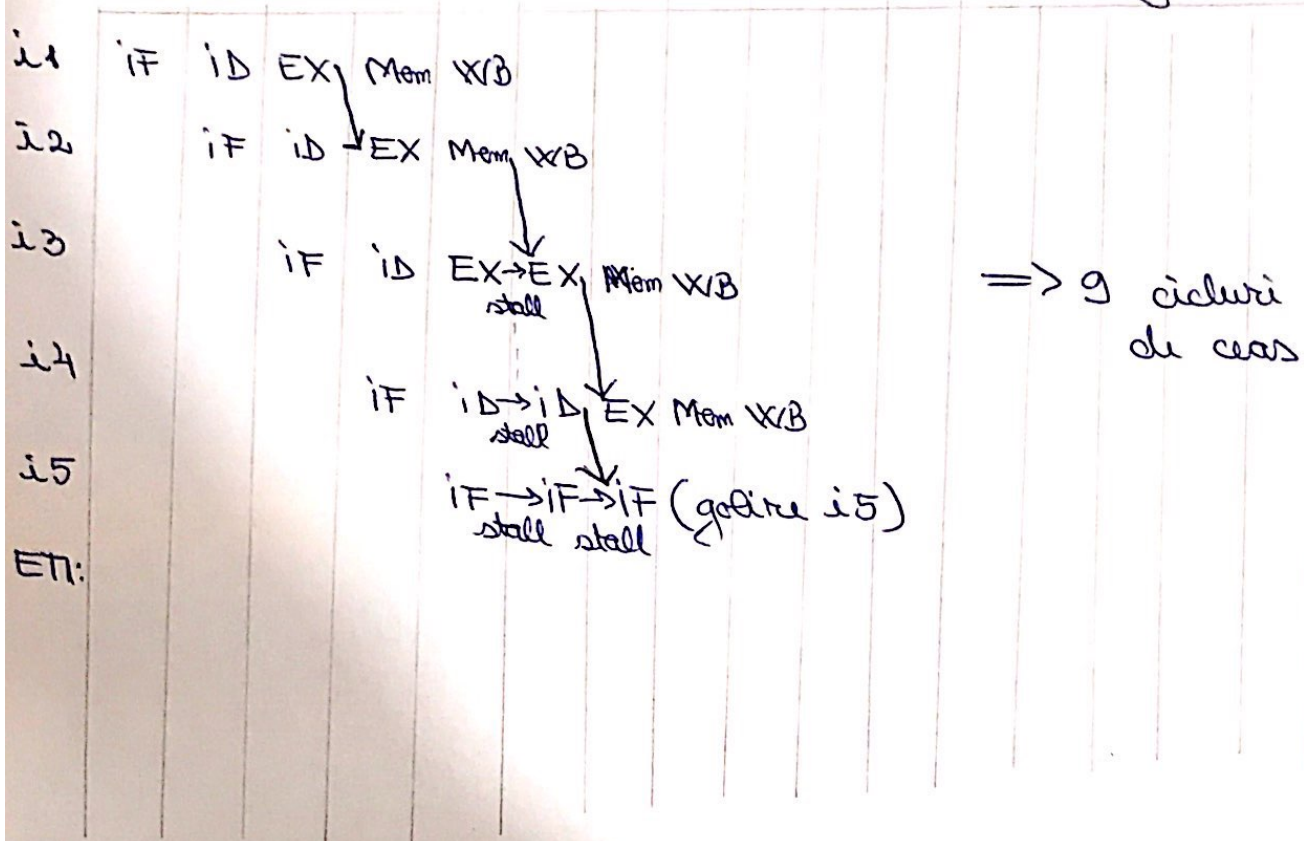 i1 iF iD EX Mem WB
i2 iF iD EX Mem WB
i3 iF iD EX→EX Mem WB
stall
=> 9 cicluri
de ceas
i4 iF iD→iD EX Mem WB
stall
i5 iF→iF→iF (golire i5)
stall stall
ETI: